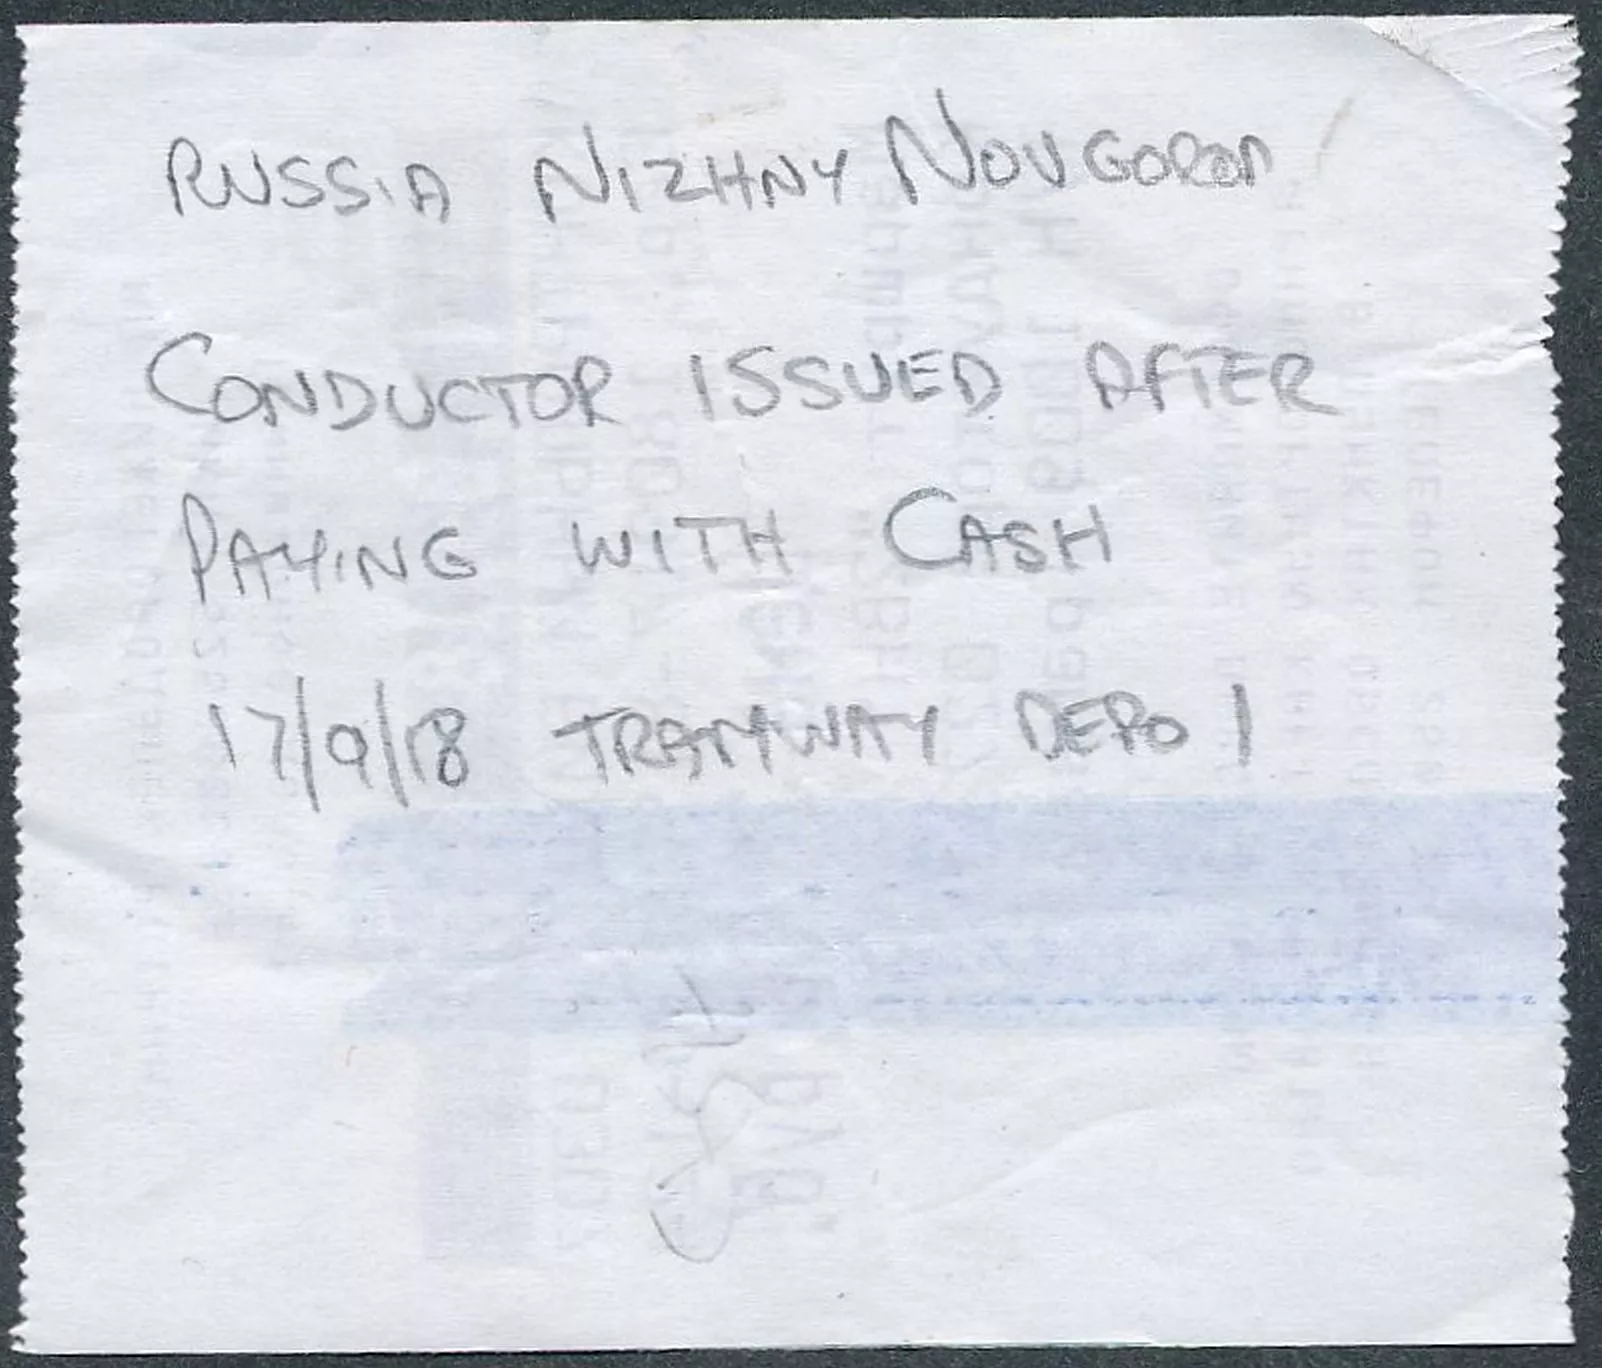 RUSSIA NIZHNY NOVGOROD
CONDUCTOR ISSUED AFTER
PAYING WITH CASH
17/9/18 TRAMWAY DEPO 1